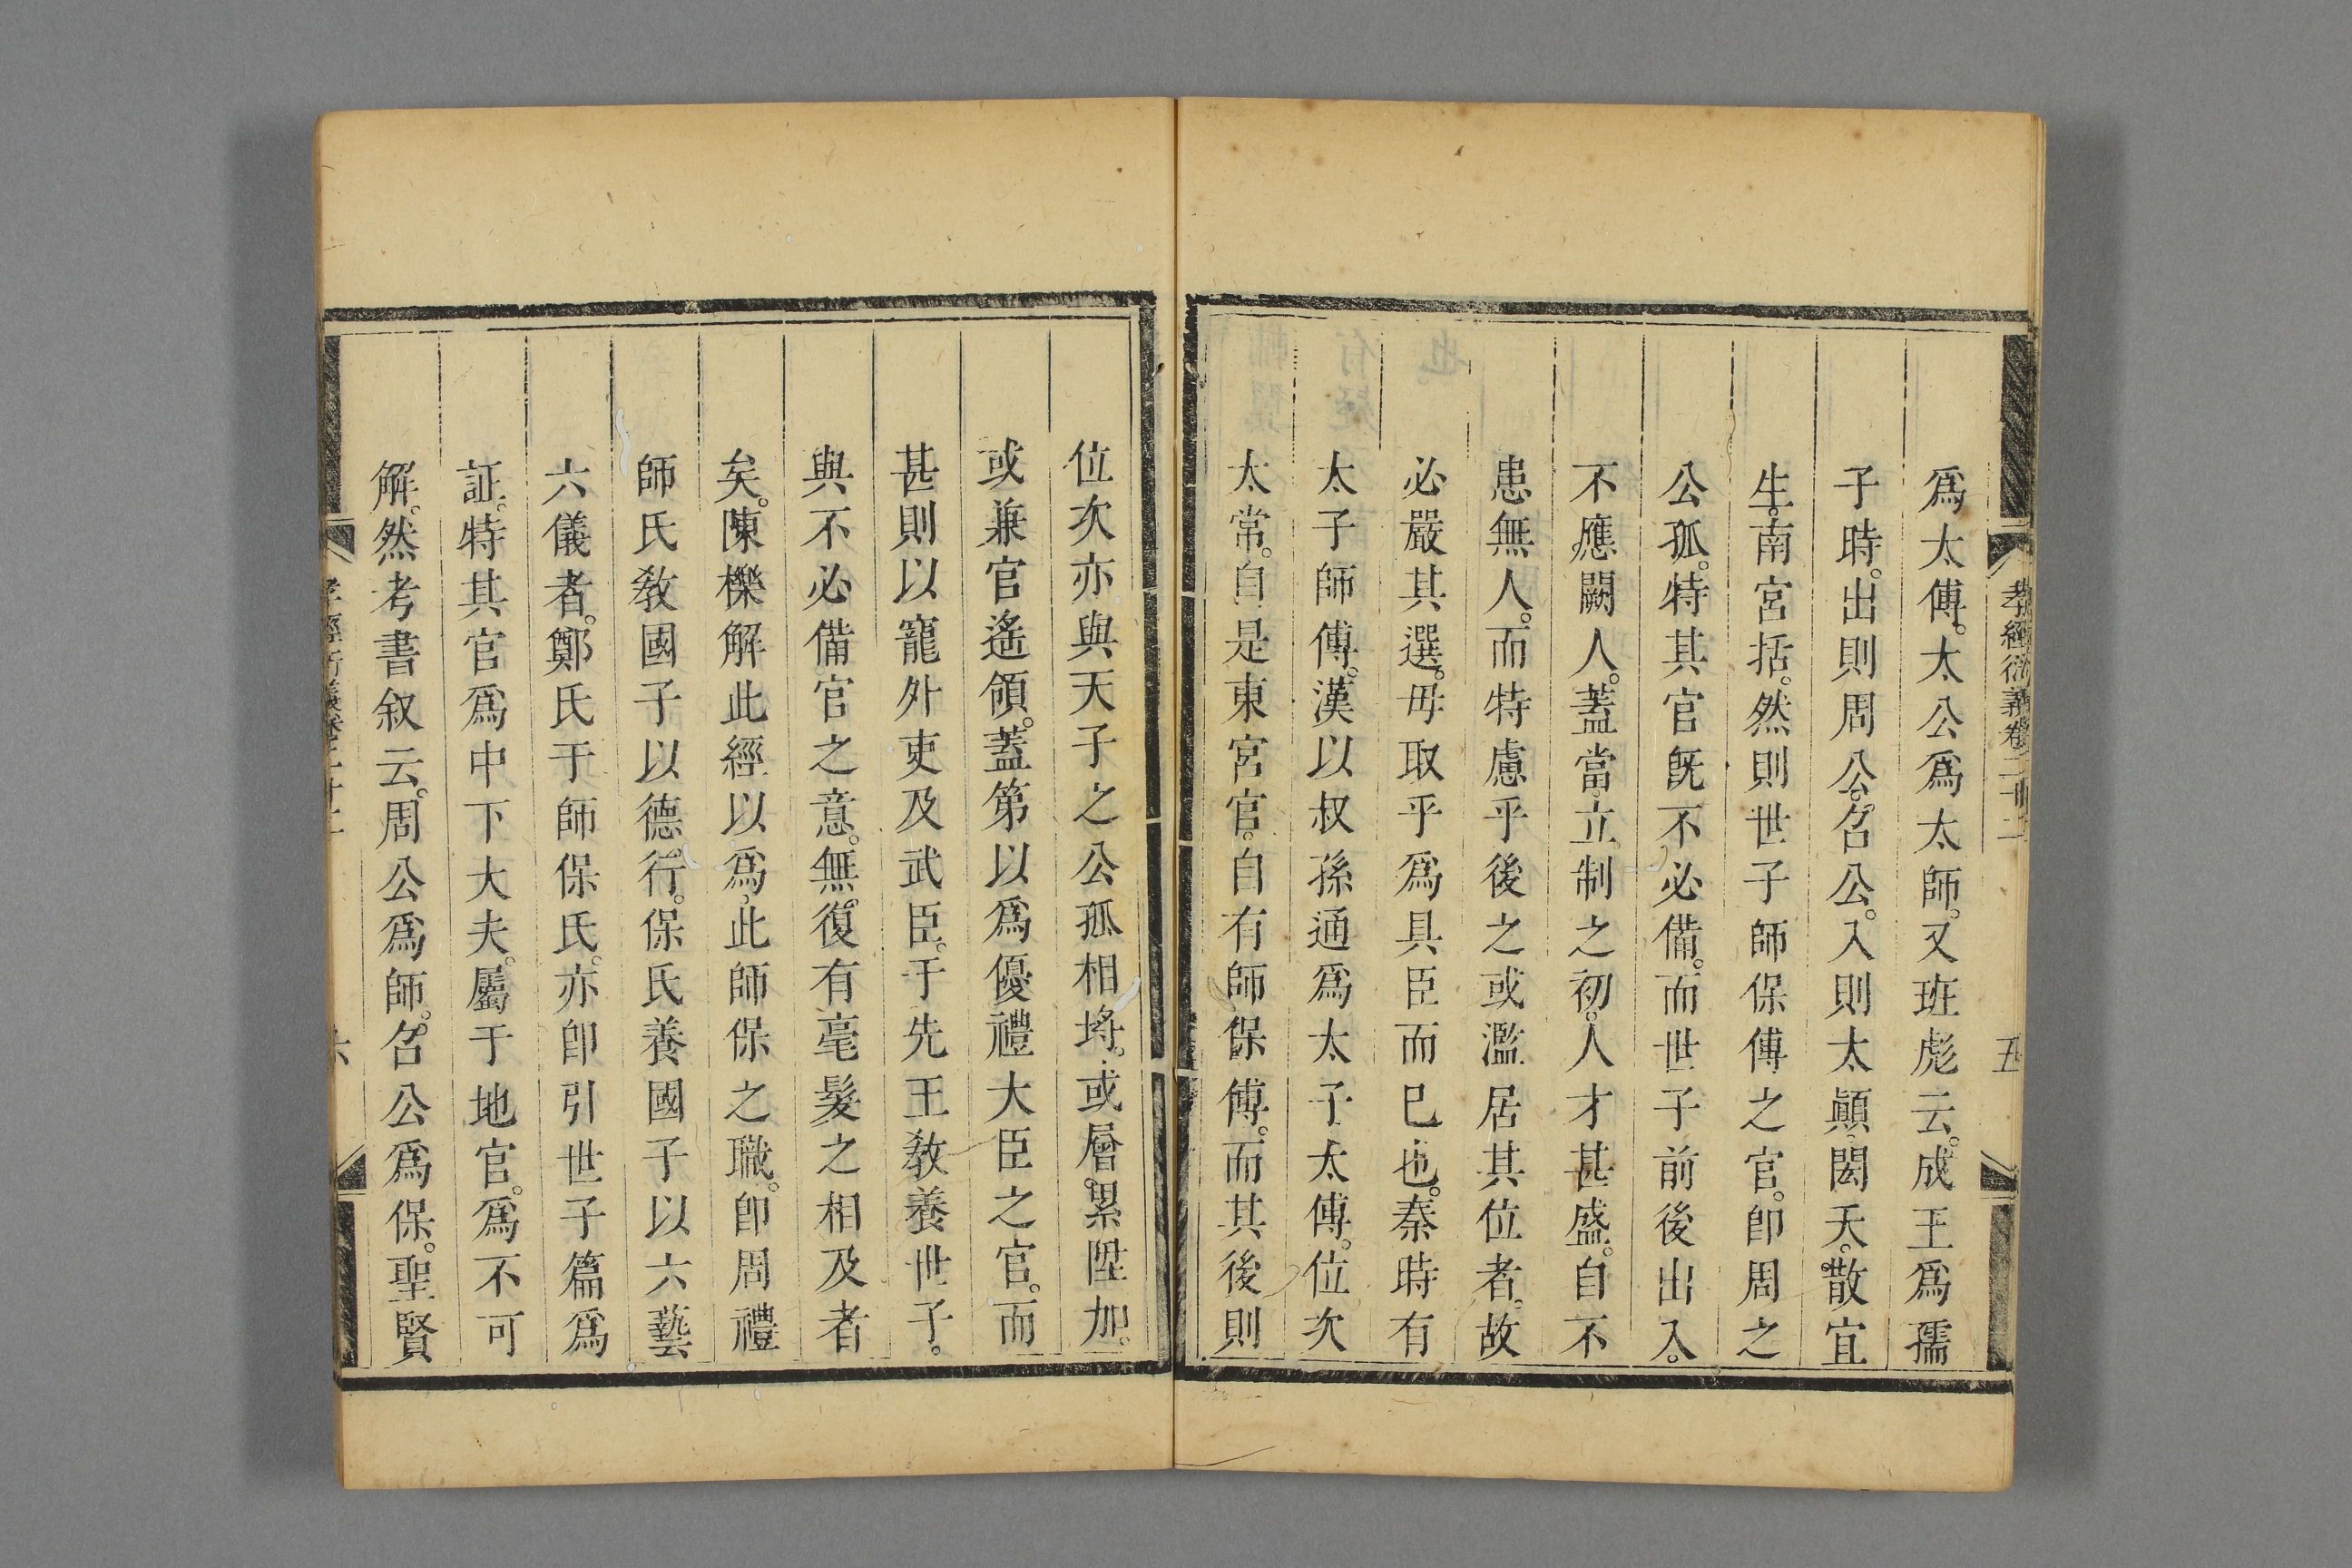 孝經衍義卷二十二
五
爲太傅。太公爲太師。又班彪云。成王爲孺
子時。出則周公。召公。入則太顚。閎夭。散宜
生。南宮括。然則世子師保傅之官。卽周之
公孤。特其官旣不必備。而世子前後出入。
不應闕人。蓋當立制之初。人才甚盛。自不
患無人。而特慮乎後之或濫居其位者。故
必嚴其選。毋取乎爲具臣而已也。秦時有
太子師傅。漢以叔孫通爲太子太傅。位次
太常。自是東宮官。自有師保傅。而其後則
位次亦與天子之公孤相埓。或層累陞加。
或兼官遙領。蓋第以爲優禮大臣之官。而
甚則以寵外吏及武臣。于先王敎養世子。
與不必備官之意。無復有毫髮之相及者
矣。陳櫟解此經以爲此師保之職。卽周禮
師氏敎國子以德行。保氏養國子以六藝
六儀者。鄭氏于師保氏。亦卽引世子篇爲
証。特其官爲中下大夫。屬于地官。爲不可
解。然考書叙云。周公爲師。召公爲保。聖賢
孝經衍義卷二十二
六